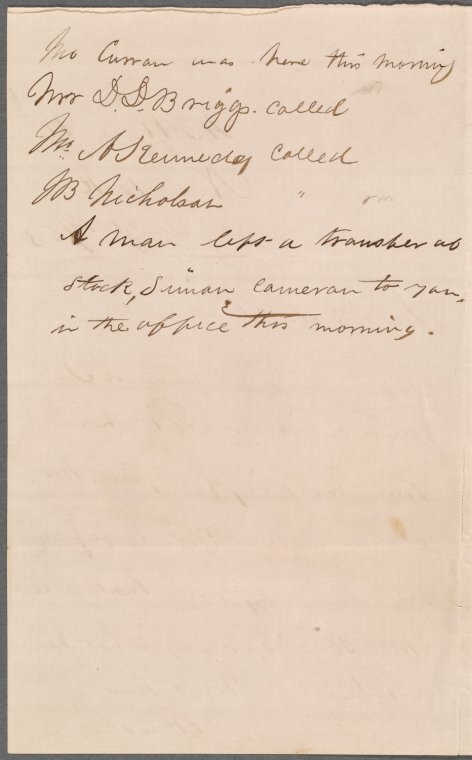 Mr Curran was here this morning
Mr D. D. Briggs. called
Mr. A Kennedy called
JB Nicholson "
A man left a transfer of
stock, Simon Cameron to you,
in the office this morning.